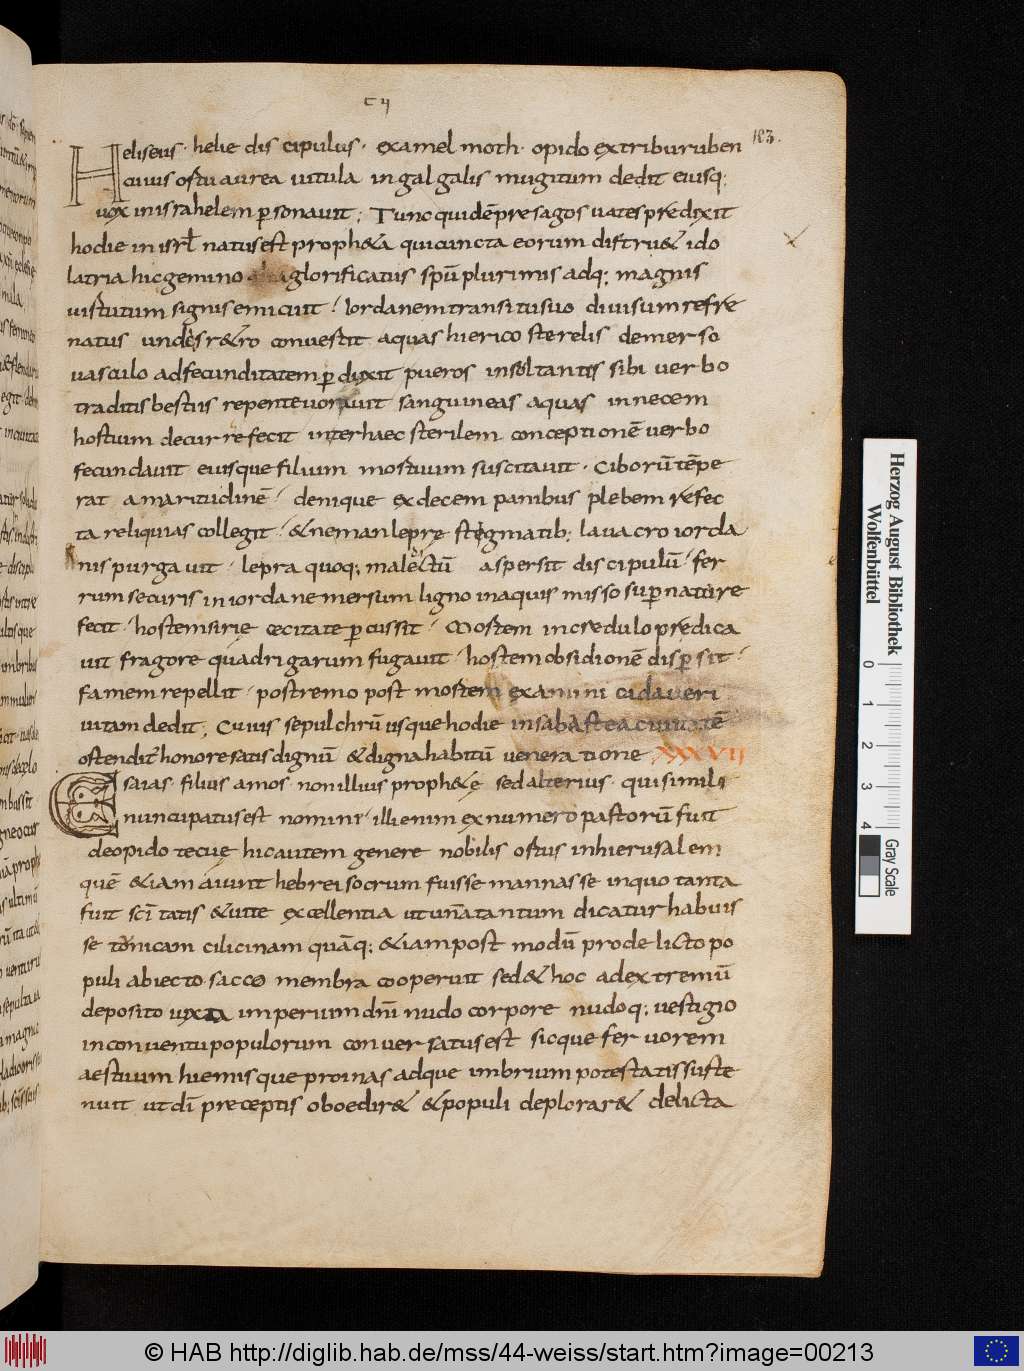 183.
Heliseus · helie discipulus · exabelmoth · opido ex tribu ruben
cuius ortu aurea uitula in galgalis mugitum dedit eiusq;
uox in israhelem ꝑsonauit; Tunc quidē presagos uates predixit
hodie in isrl̄ natus est proph&a qui cuncta eorum distru& ido
latria hic gemino glorificatus spū plurimis adq; magnis
uirtutum signis emicuit / Iordanem transitu suo diuisum refre
natus unde retro conuertit aquas hierico sterelis demerso
uasculo ad fecunditatem ꝑdixit pueros insultantes sibi uerbo
traditis bestiis repente uorauit sanguineas aquas in necem
hostium decurre fecit inter haec sterilem conceptionē uerbo
fecundauit eiusque filium mortuum suscitauit · ciborū tēpe
rat amaritudinē / denique ex decem panibus plebem refec
ta reliquias collegit / & neman lepre stigmatib; lauacro iorda
nis purgauit / lepra quoq; malectū aspersit discipulū / fer
rum securis in iordane mersum ligno in aquis misso suꝑnature
fecit / hostem sirie cecitate ꝑcussit / Mortem incredulo predica
uit fragore quadrigarum fugauit / hostem obsidionē disꝑsit /
famem repellit / postremo post mortem examini cidaueri
uitam dedit; Cuius sepulchrū usque hodie in sabastea ciuitatē
ostendit honore satis dignū & digna habitū ueneratione XXXVII
Esaias · filius amos non illius proph&e sed alterius · qui simili
nuncupatus est nomini / illi enim ex numero pastorū fuit
de opido tecue hic autem genere nobilis ortus in hierusalem
quē &iam aiunt hebrei socrum fuisse mannasse in quo tanta
fuit scī tatis & uite excellentia ut unā tantum dicatur habuis
se tonicam cilicinam quāq; &iam post modū pro delicto po
puli abiecto sacco membra cooperuit sed & hoc ad extremū
deposito uxta imperium dnī nudo corpore nudoq; uestigio
in conuentu populorum conuersatus est sicque feruorem
aestuum hiemisque proinas adque imbrium potestatis suste
nuit ut dī preceptis oboedir& & populi deplorar& delicta
Herzog August Bibliothek
Wolfenbüttel
0 1 2 3 4
Gray Scale
© HAB http://diglib.hab.de/mss/44-weiss/start.htm?image=00213